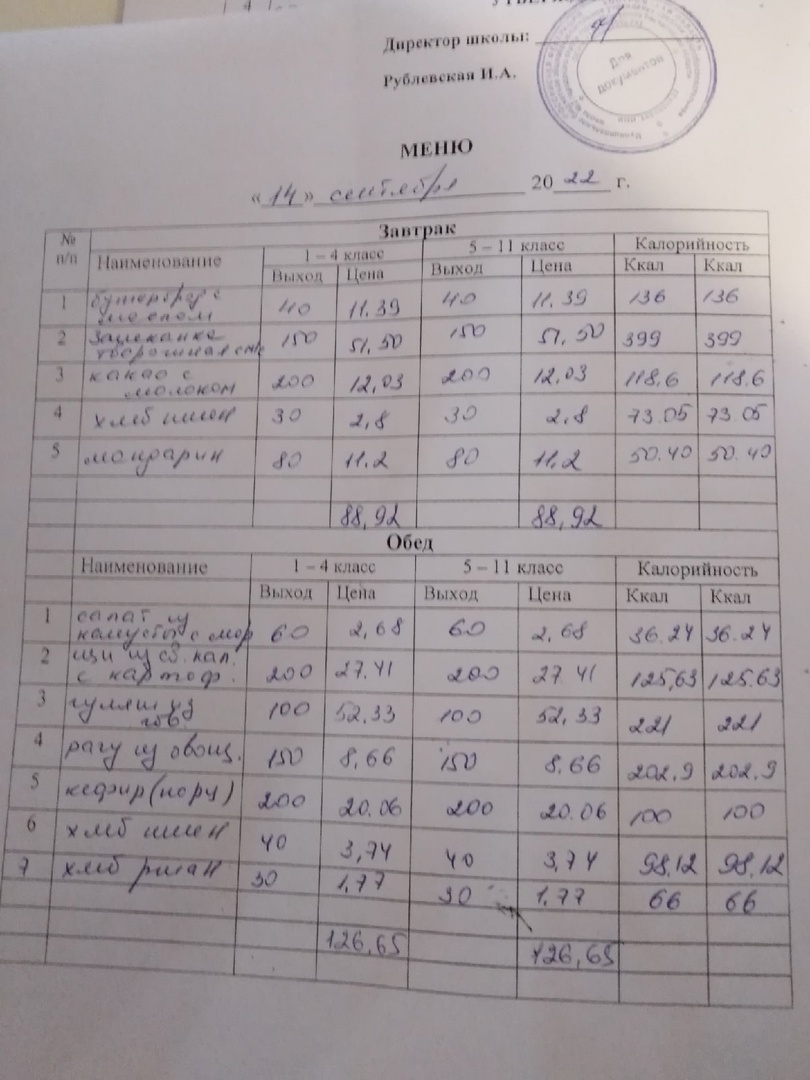 4
Директор школы:
Рублевская И.А.
Для
документов
МЕНЮ
«14» сентября 2022 г.
№ п/п Завтрак
Наименование 1 – 4 класс 5 – 11 класс Калорийность
Выход Цена Выход Цена Ккал Ккал
1 бутерброд с
маслом 40 11.39 40 11.39 136 136
2 Запеканка
творожная 150 51,50 150 51,50 399 399
3 какао с
молоком 200 12,03 200 12,03 118.6 118.6
4 хлеб пшен 30 2,8 30 2.8 73.05 73.05
5 мандарин 80 11.2 80 11.2 50.40 50.40
88,92 88,92
Обед
Наименование 1 – 4 класс 5 – 11 класс Калорийность
Выход Цена Выход Цена Ккал Ккал
1 салат из
капусты с мор 60 2,68 60 2,68 36.24 36.24
2 щи из св. кап.
с картоф. 200 27.41 200 27.41 125,63 125.63
3 гуляш из
гов 100 52,33 100 52,33 221 221
4 рагу из овощ. 150 8,66 150 8.66 202,9 202,9
5 кефир (порц) 200 20.06 200 20.06 100 100
6 хлеб пшен 40 3,74 40 3,74 98,12 98,12
7 хлеб ржан 30 1,77 30 1,77 66 66
126,65 126,65